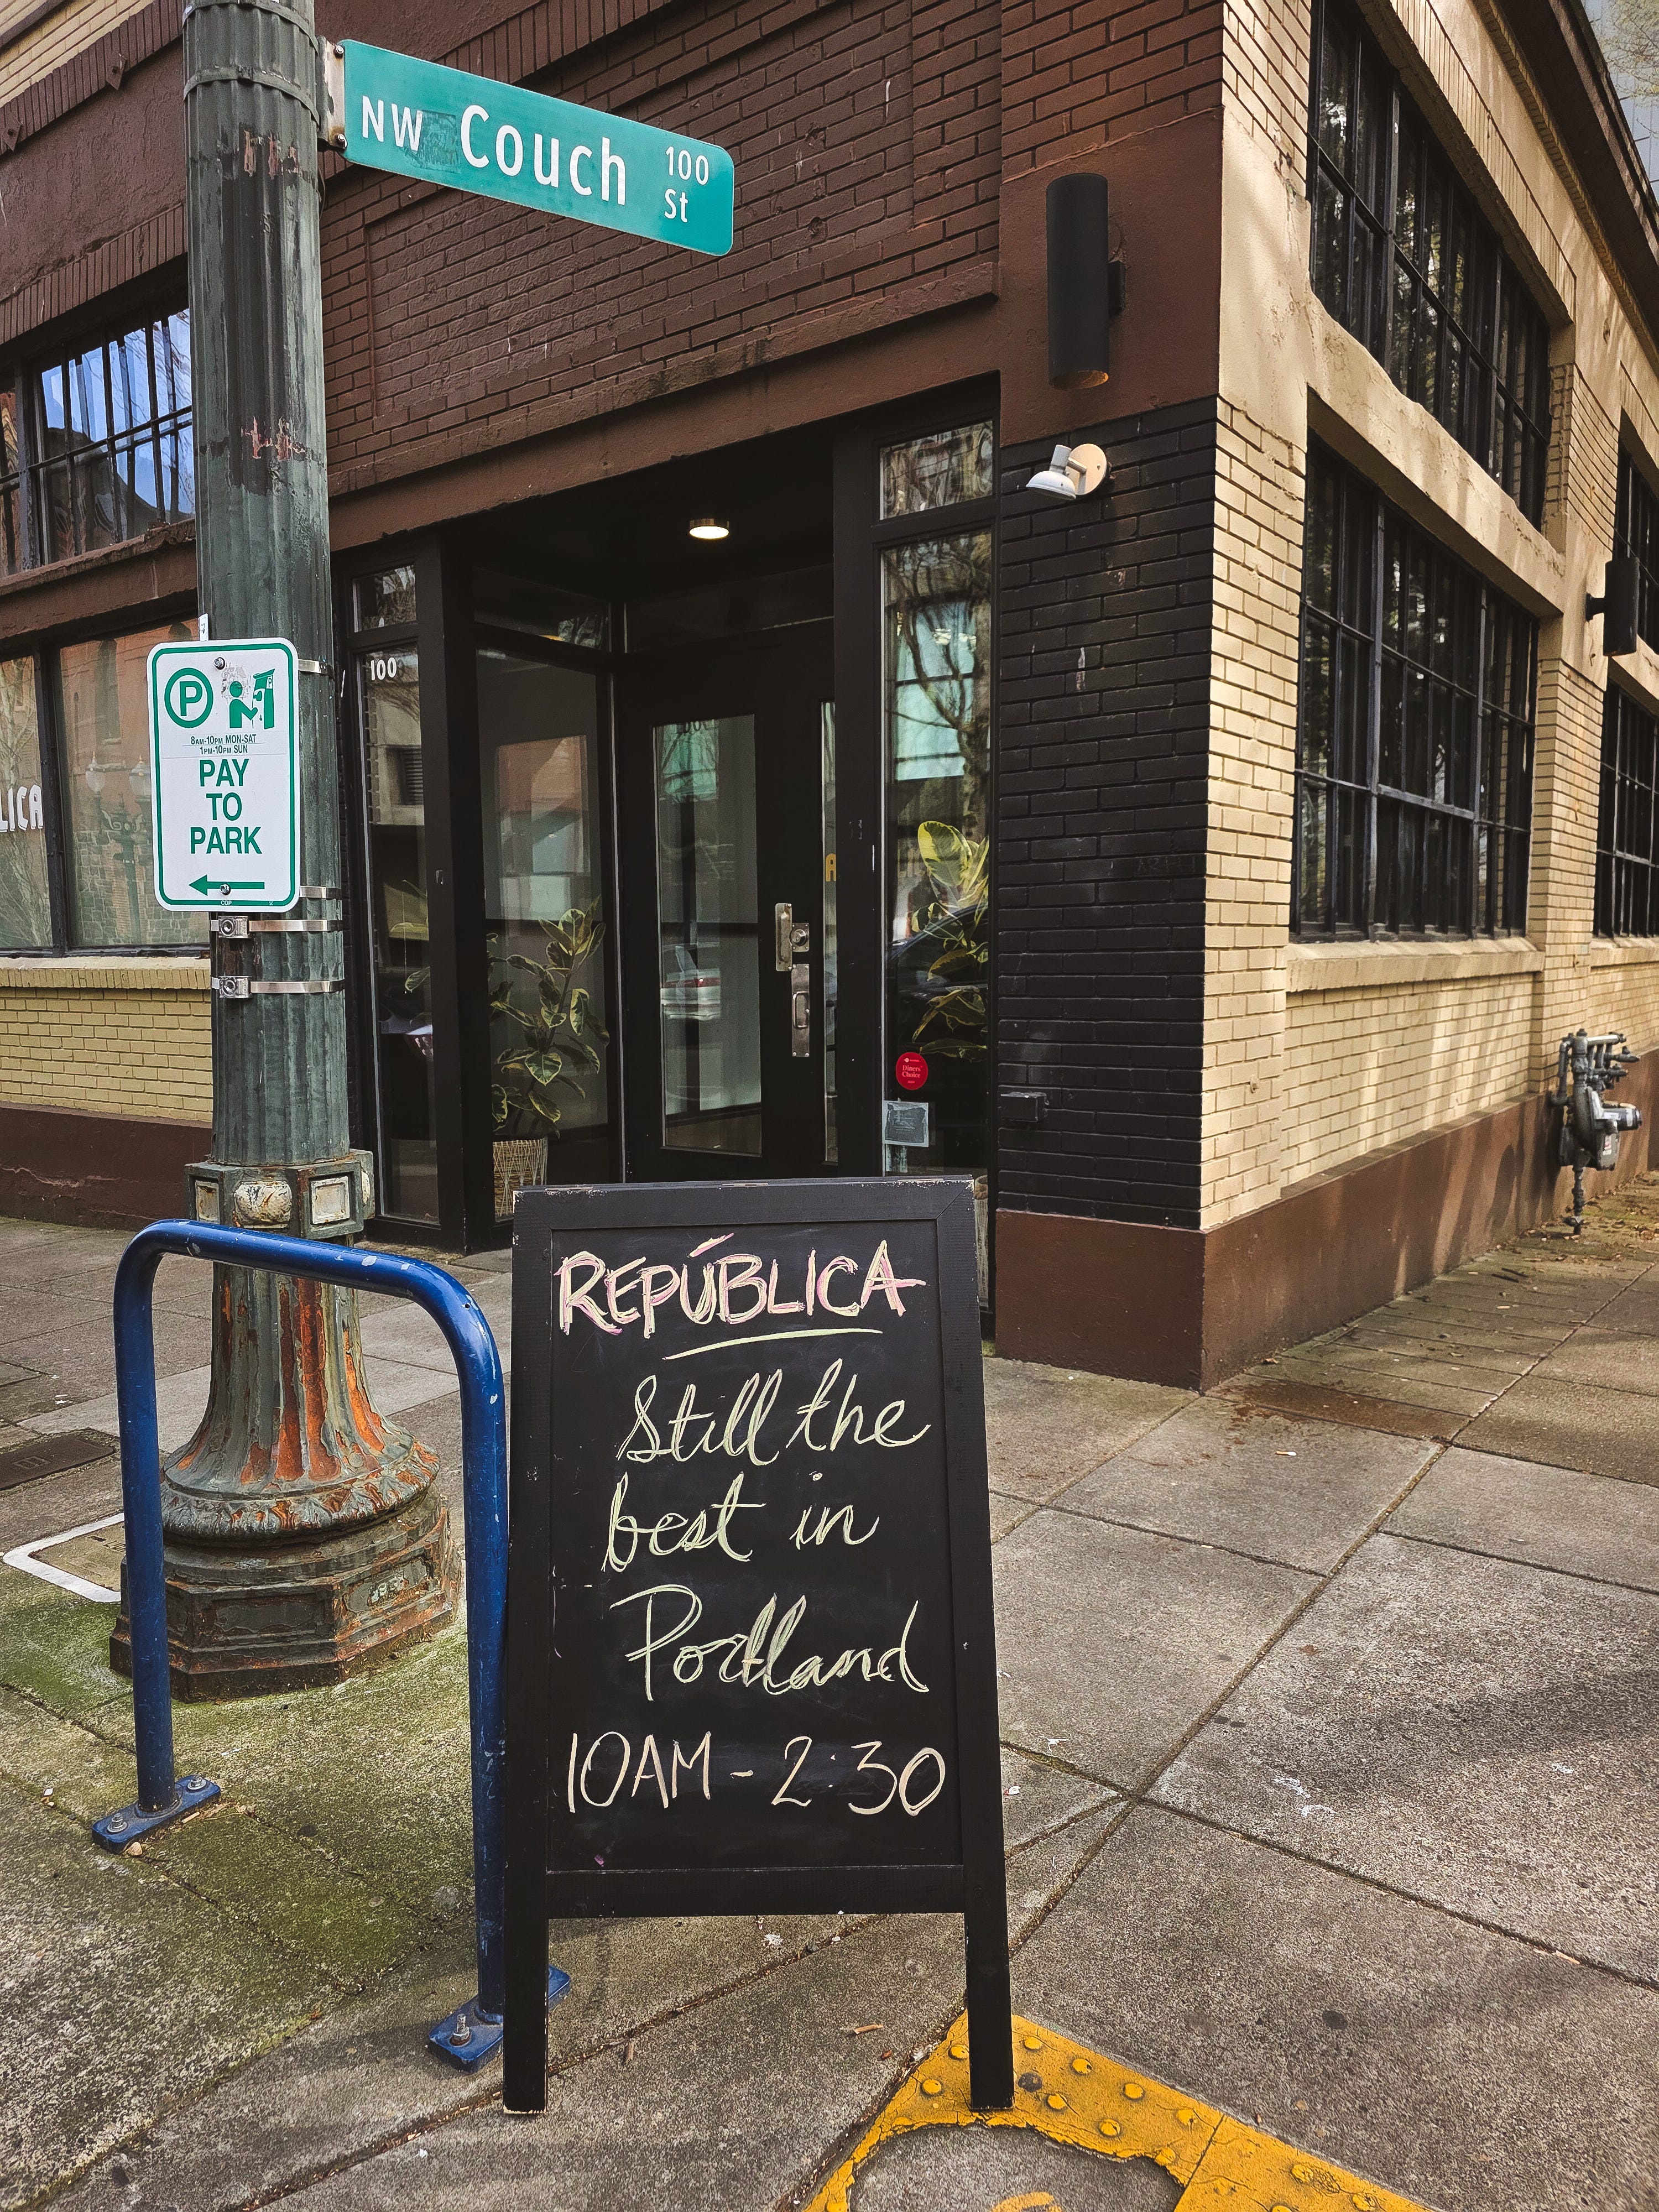 NW Couch 100 St
100
P
8AM-10PM MON-SAT
1PM-10PM SUN
PAY
TO
PARK
LICA
Diners'
Choice
REPÚBLICA
Still the
best in
Portland
10AM - 2:30